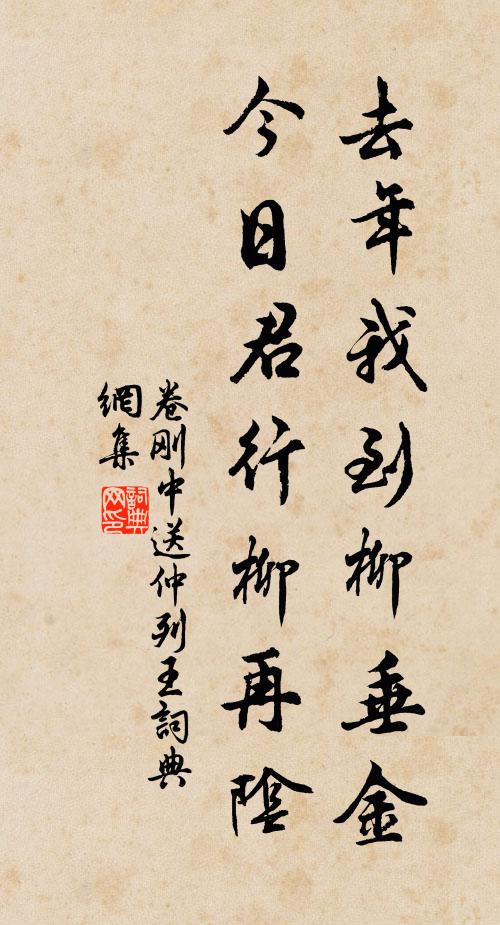 去年我到柳垂金
今日君行柳再陰
卷刚中送仲列王詞典
網集
詞典网印